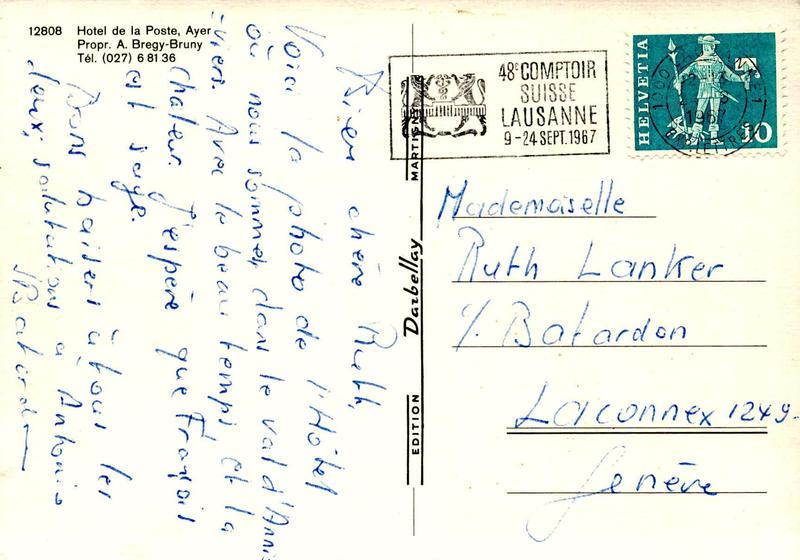 12808 Hotel de la Poste, Ayer
Propr. A. Bregy-Bruny
Tél. (027) 6 81 36
Bien chère Ruth,
Voici la photo de l'Hôtel
où nous sommes dans le val d'Anni-
-viers. Avec le beau temps et la
chaleur. J'espère que François
est sage.
Bons baisers à tous les
deux, salutations à Antonio
EDITION Darbellay MARTIGNY
48e COMPTOIR
SUISSE
LAUSANNE
9-24 SEPT. 1967
HELVETIA
1000
1967
Mademoiselle
Ruth Lanker
℅ Batardon
Laconnex 1249
Genève